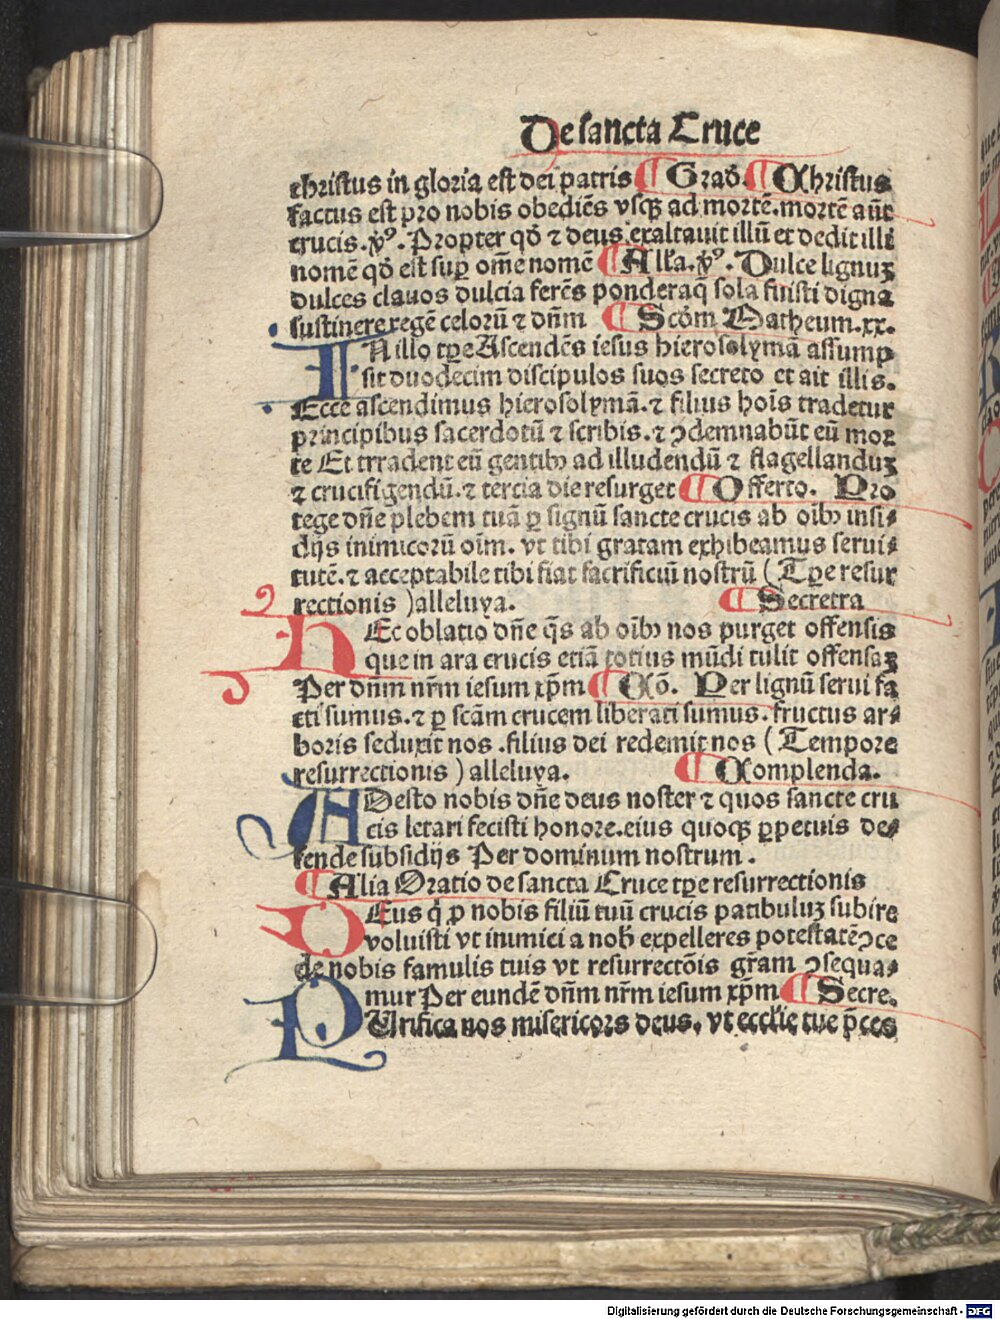 De sancta Cruce
christus in gloria est dei patris ¶ Grad̄. ¶ Christus
factus est pro nobis obediēs vsqꝫ ad mortē. mortē aūt
crucis. ℣ꝰ. Propter qđ ⁊ deus exaltauit illū et dedit illi
nomē qđ est suꝑ om̄e nomē ¶ Alla. ℣ꝰ. Dulce lignuꝫ
dulces clauos dulcia ferēs ponderaq̄ sola fuisti digna
sustinere regē celorū ⁊ dn̄m ¶ Scđm Matheum. xx.
IN illo tꝑe Ascendēs iesus hierosolymā assump
sit duodecim discipulos suos secreto et ait illis.
Ecce ascendimus hierosolymā. ⁊ filius hoīs tradetur
principibus sacerdotū ⁊ scribis. ⁊ ↄdemnabūt eū mor
te Et trradent eū gentibꝫ ad illudendū ⁊ flagellanduꝫ
⁊ crucifigendū. ⁊ tercia die resurget ¶ Offerto. Pro
tege dn̄e plebem tuā ꝑ signū sancte crucis ab oībꝫ insi⸗
dijs inimicorū oīm. vt tibi gratam exhibeamus serui⸗
tutē. ⁊ acceptabile tibi fiat sacrificiū nostrū (Tꝑe resur
rectionis )alleluya. ¶ Secretra
HEc oblatio dn̄e q̄s ab oībꝫ nos purget offensis
que in ara crucis etiā totius mūdi tulit offensaꝫ
Per dn̄m nr̄m iesum xp̄m ¶ Cō. Per lignū serui fa
cti sumus. ⁊ ꝑ scām crucem liberati sumus. fructus ar⸗
boris seduxit nos .filius dei redemit nos (Tempore
resurrectionis ) alleluya. ¶ Complenda.
ADesto nobis dn̄e deus noster ⁊ quos sancte cru
cis letari fecisti honore. eius quoqꝫ ꝑpetuis de⸗
fende subsidijs Per dominum nostrum.
¶ Alia Oratio de sancta Cruce tꝑe resurrectionis
DEus q̇ ꝓ nobis filiū tuū crucis patibuluꝫ subire
voluisti vt inimici a nob̄ expelleres potestatē ↄce
de nobis famulis tuis vt resurrectōis gr̄am ↄsequa⸗
mur Per eundē dn̄m nr̄m iesum xp̄m ¶ Secre.
PUrifica nos misericors deus, vt eccl̄ie tue p̄ces
Digitalisierung gefördert durch die Deutsche Forschungsgemeinschaft - DFG